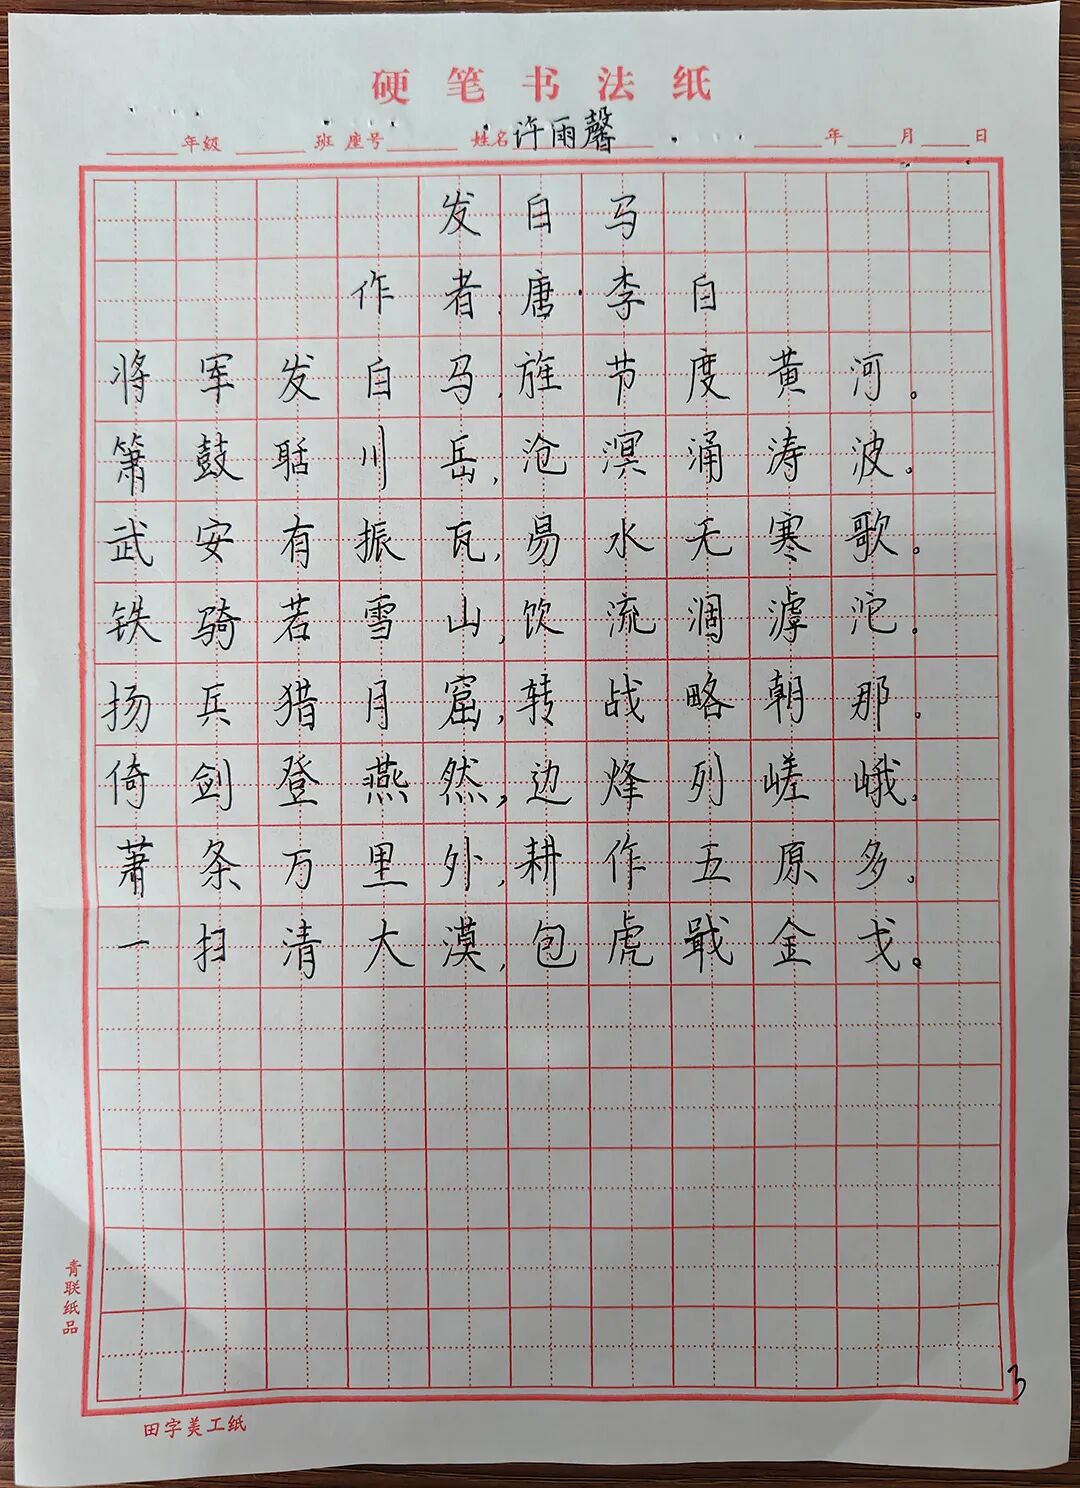 硬笔书法纸
年级 班 座号 姓名 许雨馨 年 月 日
发白马
作者:唐·李白
将军发白马,旌节度黄河。
箫鼓聒川岳,沧溟涌涛波。
武安有振瓦,易水无寒歌。
铁骑若雪山,饮流涸滹沱。
扬兵猎月窟,转战略朝那。
倚剑登燕然,边烽列嵯峨。
萧条万里外,耕作五原多。
一扫清大漠,包虎戢金戈。
青联纸品
田字美工纸
3